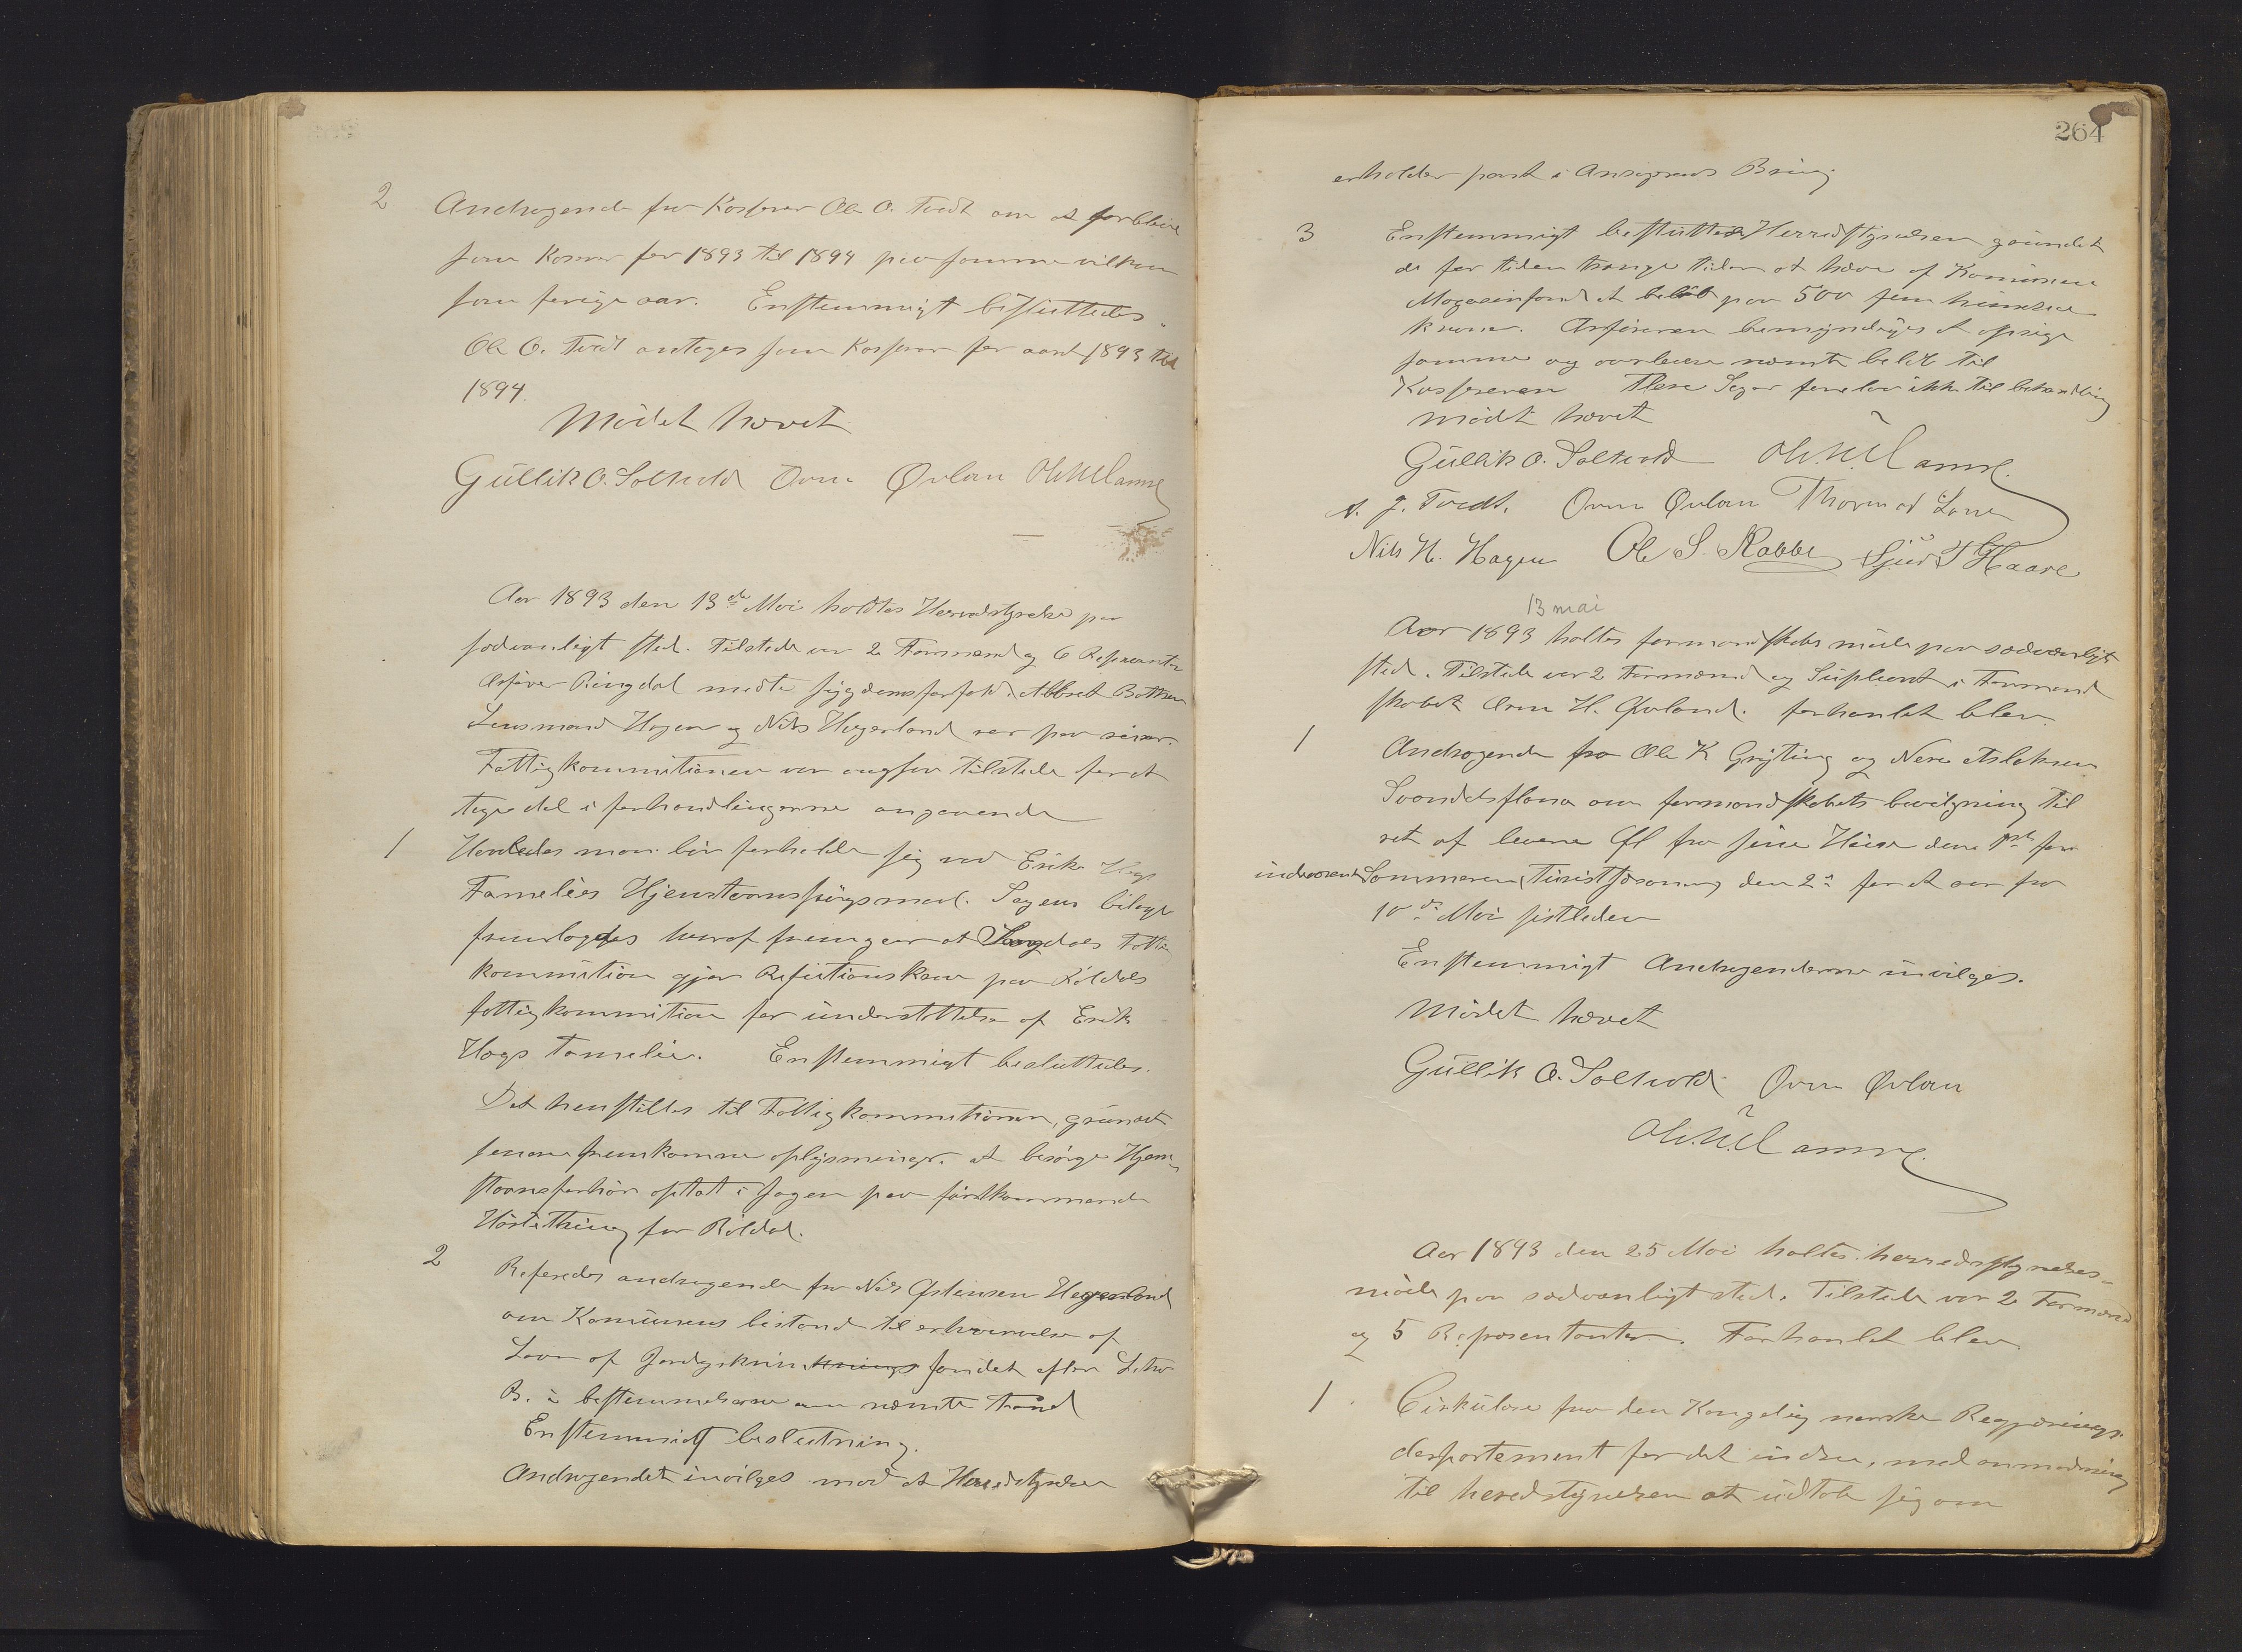 2 Andragende fra Kasserer Ole O. Tvedt om at forblive
som Kaserer for 1893 til 1894 paa samme vilkaar
som forige aar. Enstemmigt besluttedes.
Ole O. Tvedt antages som Kasserer for aaret 1893 til
1894.
Mødet hævet
Gullik O. Saltvold Orm Øvlan
Aar 1893 den 13de Mai holdtes Herredstyrelse paa
sædvanligt sted. Tilstede var 2 Formænd og 6 Represanter
Ordfører Ringdal sygdomsforfald.
Lensmand Hagen og Nils Hegerland var paa reiser.
Fattigkommitionen var ogsaa tilstede for at
tage del i forhandlingerne angaaende
1 Hvorledes man bør forholde sig ved Erik Hogs
Famelies Hjemstavnsspørgsmaal. Sagens bilage
fremlagdes hvoraf fremgaar at Fattig
kommition gjør Refutionskrav paa Røldals
fattigkommition for understøttelse af Erik
Hogs Famelie. Enstemmigt besluttedes.
Det henstilles til Fattigkommitionen, grundet
senere fremkomne oplysninger. at besørge Hjem-
stavnsforhør optat i sagen paa førstkommende
Høstething for Røldal.
2 Referedes andragende fra Nils Østensen Hegerland
om Komunens bistand til erhvervelse af
Laan af fondet efter Litra
B. i bestemmelserne om nævnte Fond
Enstemmigt beslutning.
Andragendet invilges mod at Herredstyrelsen
264
erholder pant i Ansøgerens
3 Enstemmigt besluttede Herredstyrelsen grundet
de for tiden trange tider at hæve af Komunens
Magasinfond et beløb paa 500 fem hundrede
kroner. Ordføreren bemyndiges at opsige
samme og overlevere nævnte beløb til
Kassereren Flere Sager forelaa ikke til behandling
mødet hævet
Gullik O. Saltvold
J. Tvedt. Orm Øvlan Thormod
Nils H. Hagen Ole S. Rabbe Sjur T Haare
13 mai
Aar 1893 holtes formandskabs møde paa sædvanligt
sted. Tilstede var 2 Formænd og Supleant i Formand
skabet Orm H. Øvland. forhanlet blev.
1 Andragende fra Ole K Gryting og Aslaksen
Svandalsflona om formandskabets bevilgning til
ret af levere Øl fra sine Huse den 1ste for
indeværende Sommeren (Turistsæsonen) den 2den for et aar fra
10de Mai sistleden
Enstemmigt Andragenderne invilges.
Mødet hævet
Gullik O. Saltvold Orm Øvlan
Aar 1893 den 25 Mai holtes herredsstyrelses-
møde paa sædvanligt sted. Tilstede var 2 Formænd
og 5 Reprosentanter. Forhanlet blev
1 Cirkulære fra den Kongelig norske Regjerings
departement for det indre, med anmodning
til heredstyrelsen at udtale sig om